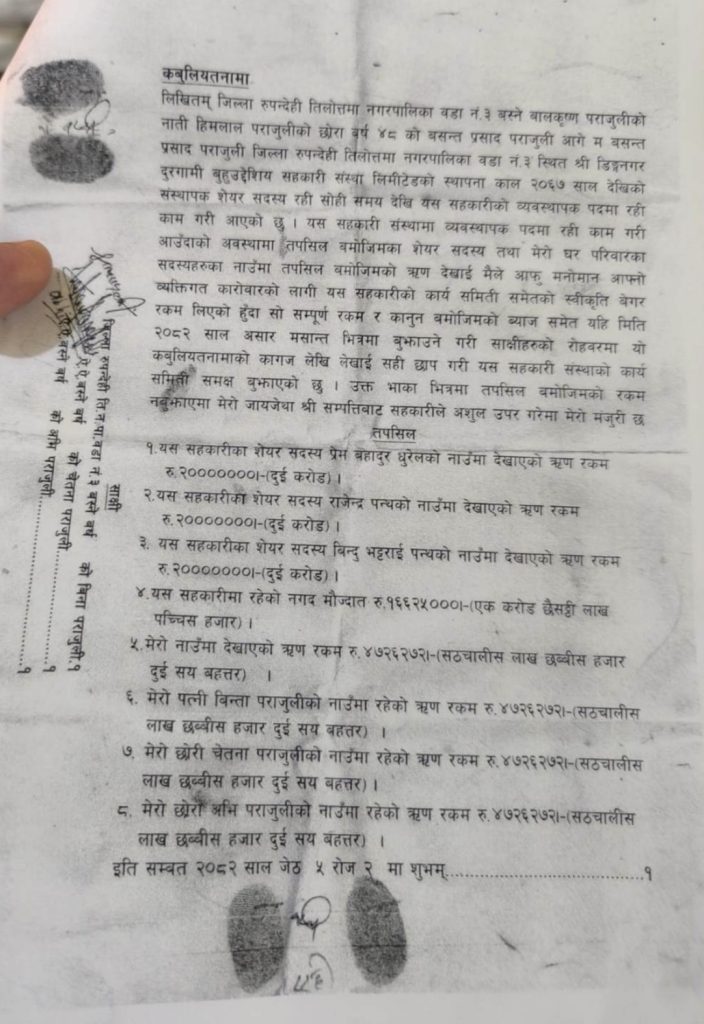 कबुलियतनामा
लिखितम् जिल्ला रुपन्देही तिलोत्तमा नगरपालिका वडा नं.३ बस्ने बालकृष्ण पराजुलीको
नाती हिमलाल पराजुलीको छोरा बर्ष ४८ को बसन्त प्रसाद पराजुली आगे म बसन्त
प्रसाद पराजुली जिल्ला रुपन्देही तिलोत्तमा नगरपालिका वडा नं.३ स्थित श्री डिङ्गनगर
दुरगामी बुहुउद्देशिय सहकारी संस्था लिमीटेडको स्थापना काल २०६७ साल देखिको
संस्थापक शेयर सदस्य रही सोही समय देखि यस सहकारीको व्यवस्थापक पदमा रही
काम गरी आएको छु । यस सहकारी संस्थामा व्यवस्थापक पदमा रही काम गरी
आउँदाको अवस्थामा तपसिल बमोजिमका शेयर सदस्य तथा मेरो घर परिवारका
सदस्यहरुका नाउँमा तपसिल बमोजिमको ऋण देखाई मैले आफु मनोमान आफ्नो
व्यक्तिगत कारोबारको लागी यस सहकारीको कार्य समिती समेतको स्वीकृति बेगर
रकम लिएको हुँदा सो सम्पूर्ण रकम र कानुन बमोजिमको ब्याज समेत यहि मिति
२०८२ साल असार मसान्त भित्रमा बुझाउने गरी साक्षीहरुको रोहबरमा यो
कबुलियतनामाको कागज लेखि लेखाई सही छाप गरी यस सहकारी संस्थाको कार्य
समिती समक्ष बुझाएको छु । उक्त भाका भित्रमा तपसिल बमोजिमको रकम
नबुझाएमा मेरो जायजेथा श्री सम्पत्तिबाट सहकारीले अशुल उपर गरेमा मेरो मंजुरी छ
तपसिल
१.यस सहकारीका शेयर सदस्य प्रेम बहादुर धुरेलको नाउँमा देखाएको ऋण रकम
रु.२०००००००।-(दुई करोड) ।
२.यस सहकारीका शेयर सदस्य राजेन्द्र पन्थको नाउँमा देखाएको ऋण रकम
रु.२०००००००।-(दुई करोड) ।
३. यस सहकारीका शेयर सदस्य बिन्दु भट्टराई पन्थको नाउँमा देखाएको ऋण रकम
रु.२०००००००।-(दुई करोड) ।
४.यस सहकारीमा रहेको नगद मौज्दात रु.१६६२५०००।-(एक करोड छैसट्टी लाख
पच्चिस हजार) ।
५.मेरो नाउँमा देखाएको ऋण रकम रु.४७२६२७२।-(सठचालीस लाख छब्बीस हजार
दुई सय बहत्तर) ।
६. मेरो पत्नी बिन्ता पराजुलीको नाउँमा रहेको ऋण रकम रु.४७२६२७२।-(सठचालीस
लाख छब्बीस हजार दुई सय बहत्तर) ।
७. मेरो छोरी चेतना पराजुलीको नाउँमा रहेको ऋण रकम रु.४७२६२७२।-(सठचालीस
लाख छब्बीस हजार दुई सय बहत्तर) ।
८. मेरो छोरा अभि पराजुलीको नाउँमा रहेको ऋण रकम रु.४७२६२७२।-(सठचालीस
लाख छब्बीस हजार दुई सय बहत्तर) ।
इति सम्बत २०८२ साल जेठ ५ रोज २ मा शुभम्..............................१
साक्षी
जिल्ला रुपन्देही ति.न.पा.वडा नं.३ बस्ने बर्ष को बिना पराजुली.१
ऐ.ऐ.बस्ने बर्ष को चेतना पराजुली....................१
ऐ.ऐ.बस्ने बर्ष को अभि पराजुली....................१